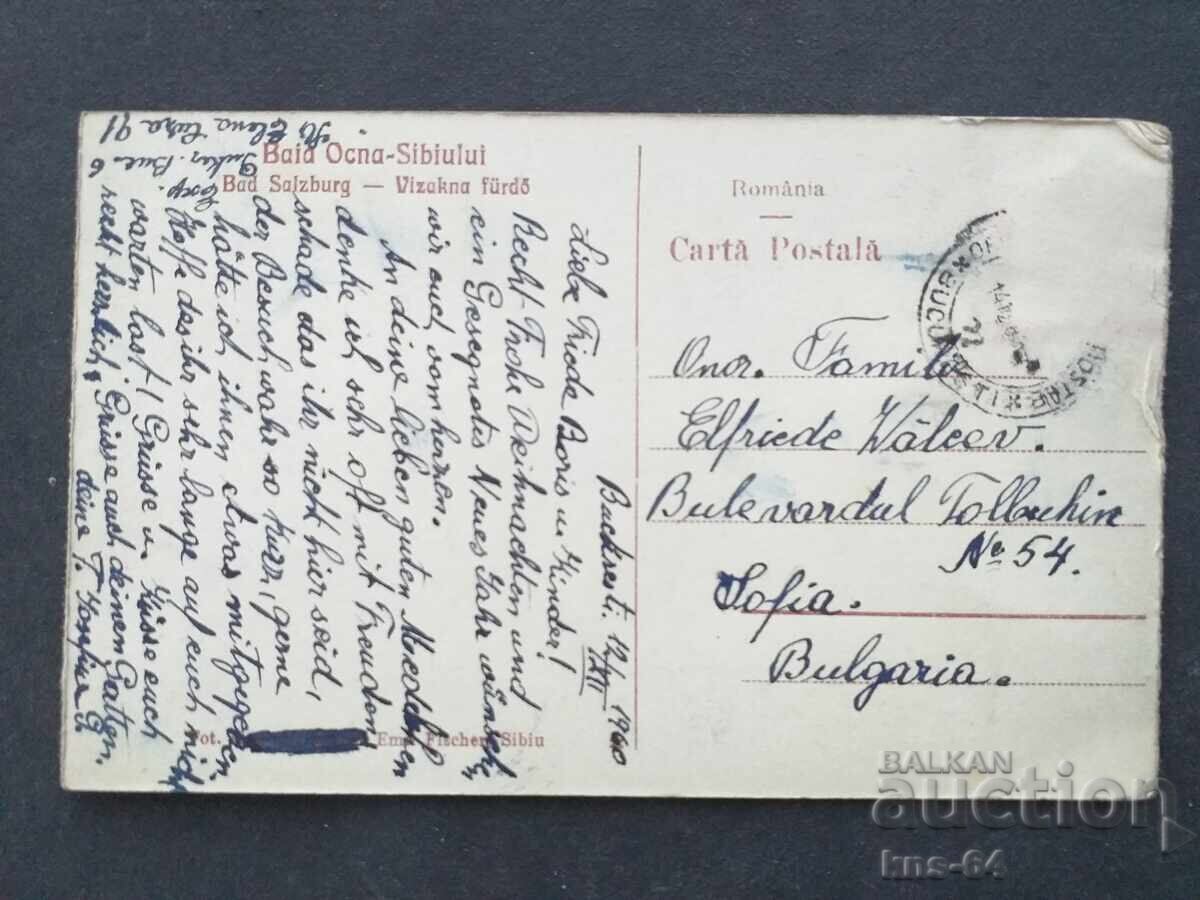 Baia Ocna-Sibiului
Bad Salzburg — Vizakna fürdő
România
Cartă Postală
Onor. Familie
Elfriede Wâlcev.
Bulevardul Tolbuhin
No 54.
Sofia.
Bulgaria.
Bucuresti. 12/XII 1960
Liebe Friede Boris u. Kinder!
Recht Frohe Weihnachten und
ein Gesegnetes Neues Jahr wünschen
wir euch vom herzen.
An deine lieben guten Maedchen
denke ich sehr oft mit Freuden
schade das ihr nicht hier seid,
der Besuch wahr so kurz, gerne
hätte ich ihnen etwas mitgegeben
Hoffe das ihr sehr lange auf euch nicht
warten last! Grüsse u. Küsse euch
recht herzlich, Grüsse auch deinen Gatten.
deine
Elena Cuza 91
Buc. 6
Fot. Emil Fischer, Sibiu
BUCUREȘTI
14
BALKAN
auction
kns-64